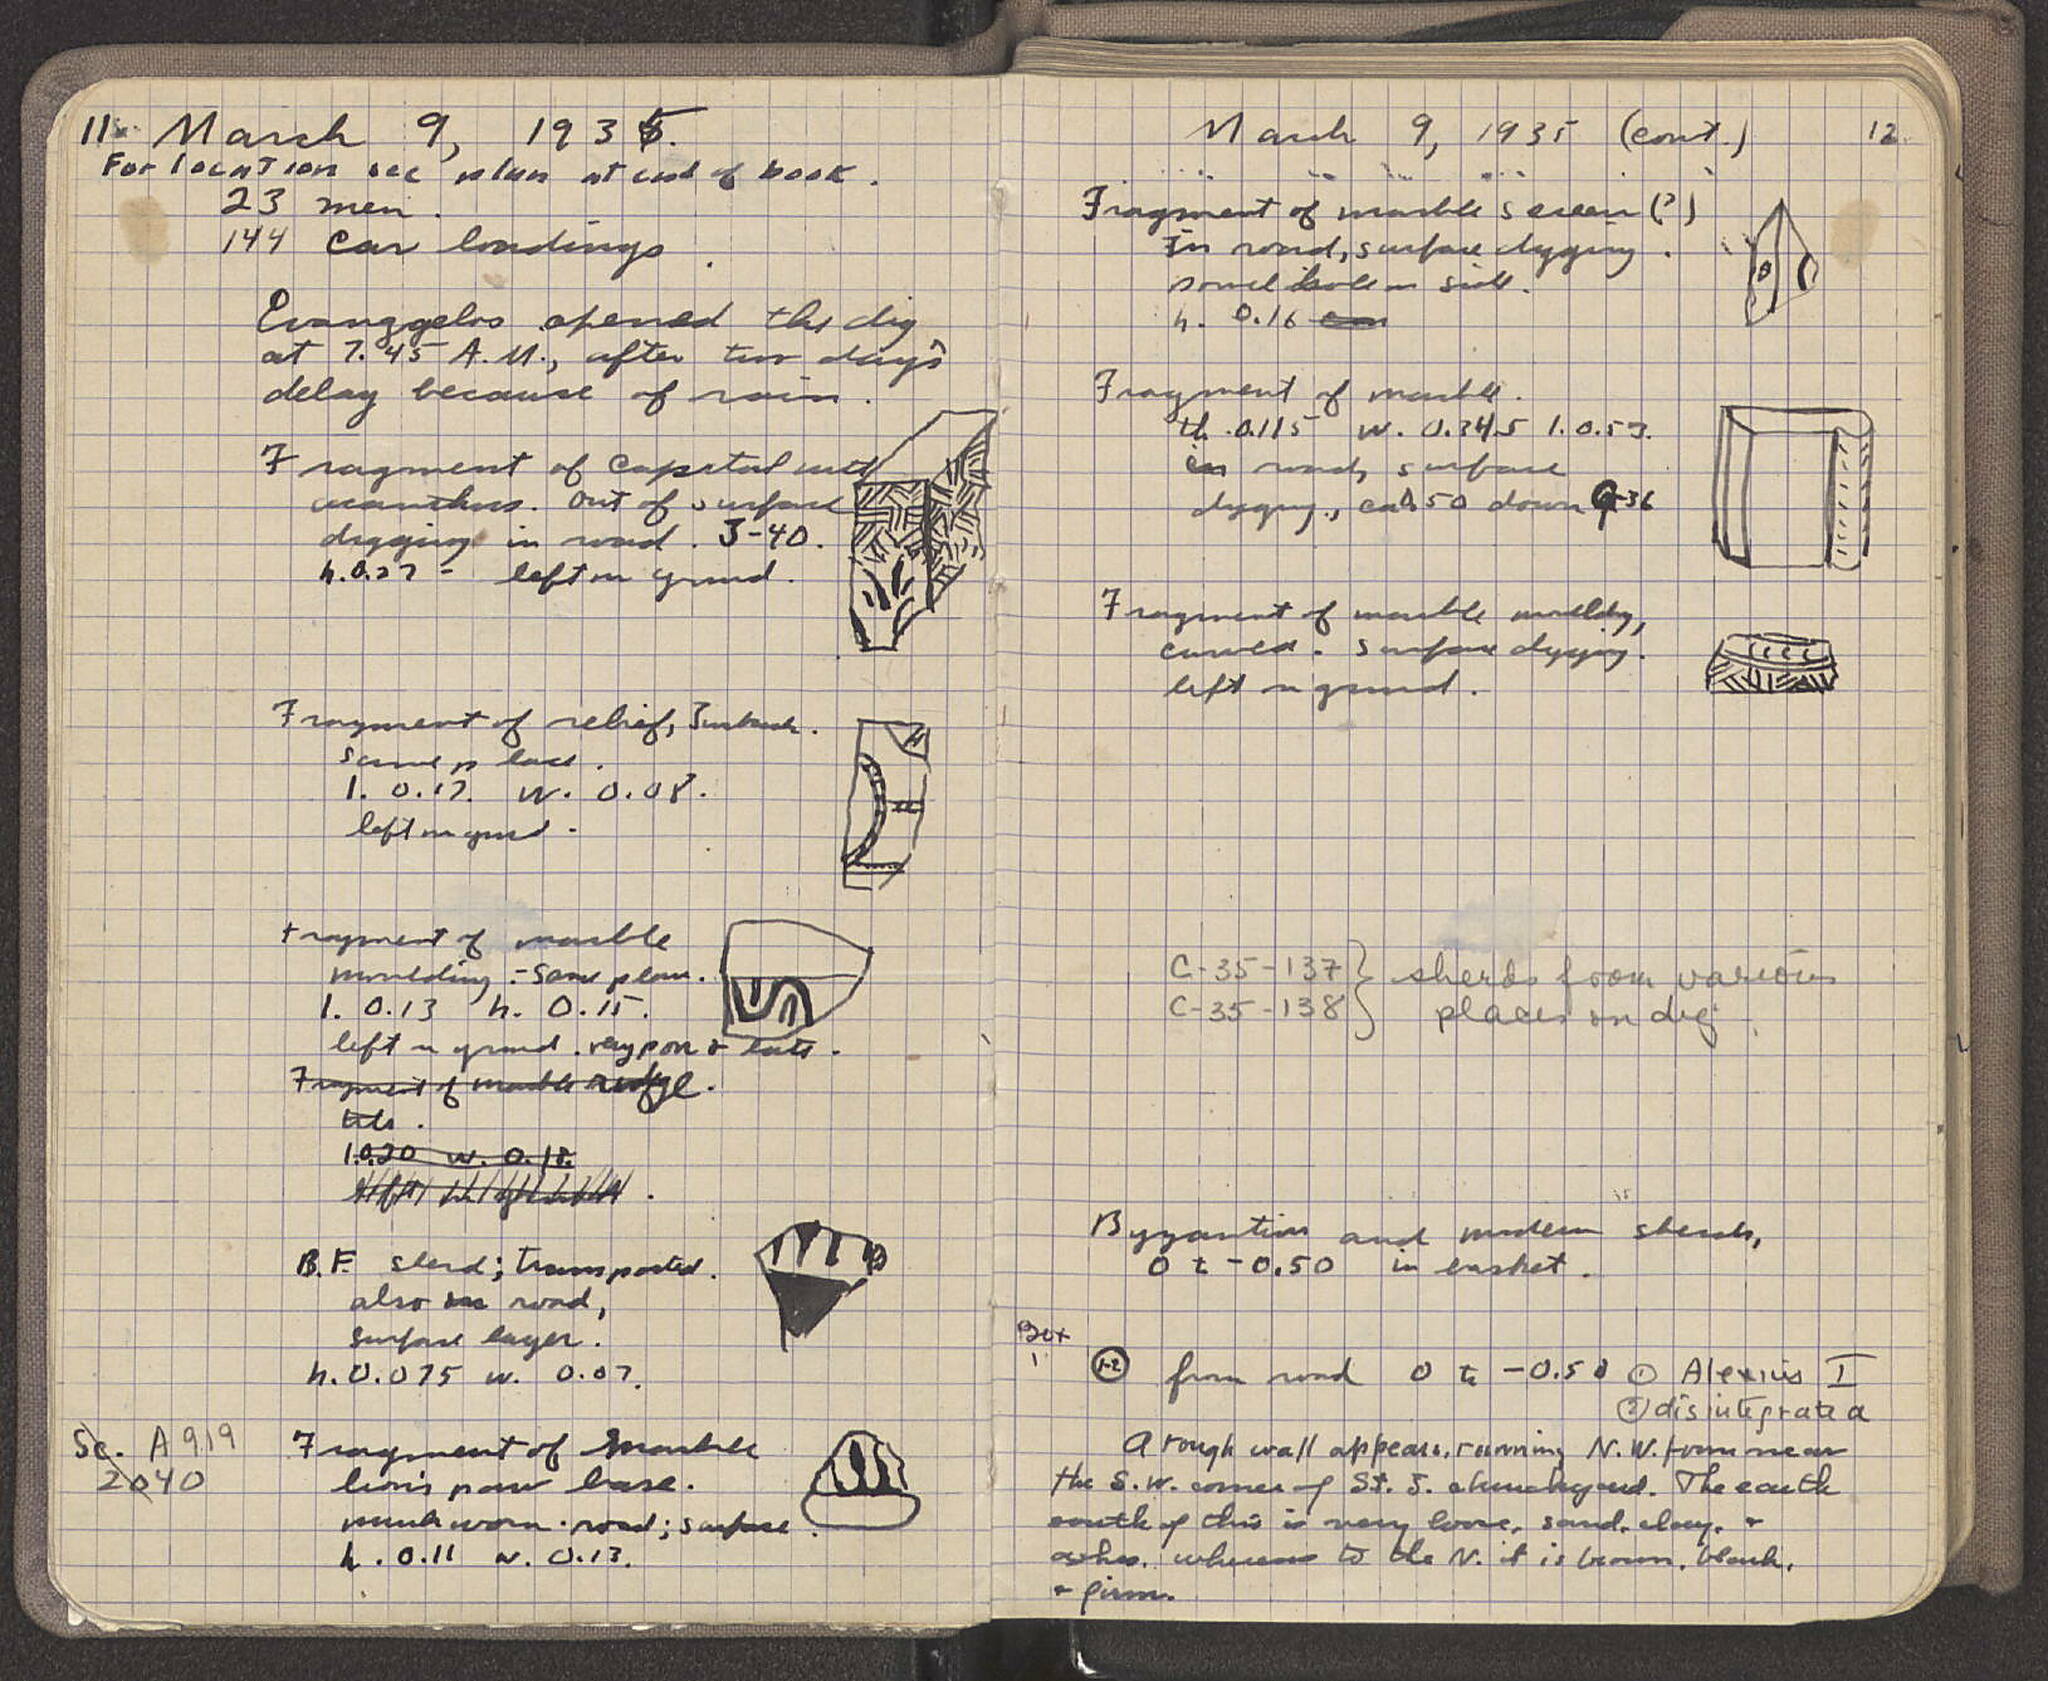 11. March 9, 1935.
For location see plan at end of book.
23 men.
144 car loadings.
Evanggelos opened the dig
at 7.45 A.M., after two day's
delay because of rain.
Fragment of capital with
acanthus. Out of surface
digging in road. J-40.
h. 0.27 - left on ground.
Fragment of relief, Turkish.
same place.
l. 0.17. w. 0.08.
left on ground.
Fragment of marble
moulding. - Same place.
l. 0.13 h. 0.15.
left on ground. & lats.
Fragment of marble ridge.
tile.
l. 0.20 w. 0.18.
left on ground.
B.F. sherd; transported.
also in road,
surface layer.
h. 0.075 w. 0.07.
Sc. A 919
2040
Fragment of marble
lion's paw base.
much worn. road; surface.
h. 0.11 w. 0.13.
March 9, 1935 (cont.) 12.
Fragment of marble screen (?)
In road, surface digging.
Dowel hole on side.
h. 0.16 cm
Fragment of marble.
th. 0.115 w. 0.345 l. 0.53.
in road, surface
digging, 50 down 9-36
Fragment of marble moulding,
curved. Surface digging.
left on ground.
C-35-137 } sherds from various
C-35-138 } places on dig.
Byzantine and modern sherds,
0 to -0.50 in basket.
Box
1
(1-2) from road 0 to -0.50 (1) Alexius I
(2) disintegrated
A rough wall appears, running N.W. from near
the S.W. corner of St. J. churchyard. The earth
south of this is very loose, sand, clay, &
ashes, whereas to the N. it is brown, black,
& firm.